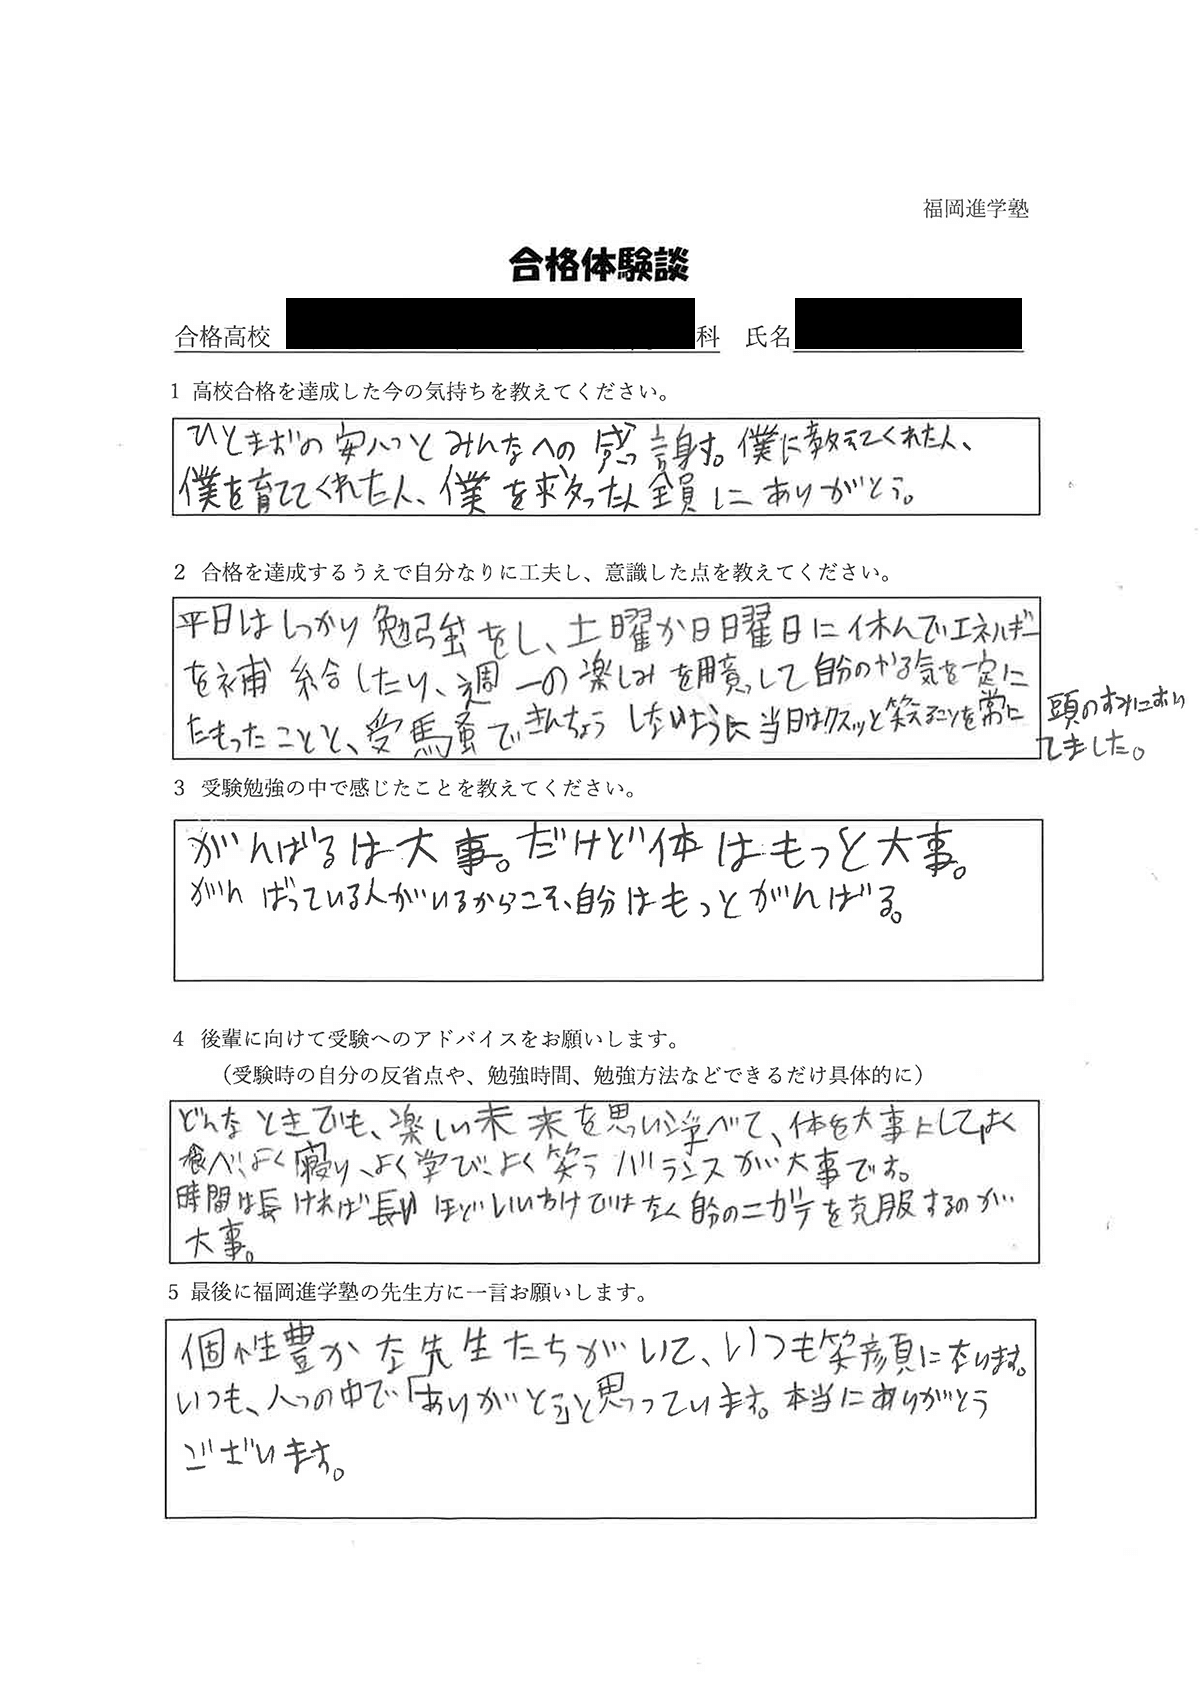 福岡進学塾
合格体験談
合格高校 科 氏名
1 高校合格を達成した今の気持ちを教えてください。
ひとまずの安心とみんなへの感謝。僕に教えてくれた人、
僕を育ててくれた人、僕を救った人全員にありがとう。
2 合格を達成するうえで自分なりに工夫し、意識した点を教えてください。
平日はしっかり勉強をし、土曜か日曜日に休んでエネルギー
を補給したり、週一の楽しみを用意して自分のやる気を一定に
たもったことと、受験できんちょうしないように当日はクスッと笑えることを常に
頭のすみにおい
てました。
3 受験勉強の中で感じたことを教えてください。
がんばるは大事。だけど体はもっと大事。
がんばっている人がいるからこそ、自分はもっとがんばる。
4 後輩に向けて受験へのアドバイスをお願いします。
（受験時の自分の反省点や、勉強時間、勉強方法などできるだけ具体的に）
どんなときでも、楽しい未来を思い浮べて、体を大事にしてよく
食べ、よく寝り、よく学び、よく笑うバランスが大事です。
時間は長ければ長いほどいいわけではなく自分のニガテを克服するのが
大事。
5 最後に福岡進学塾の先生方に一言お願いします。
個性豊かな先生たちがいて、いつも笑顔になります。
いつも、心の中で「ありがとう」と思っています。本当にありがとう
ございます。